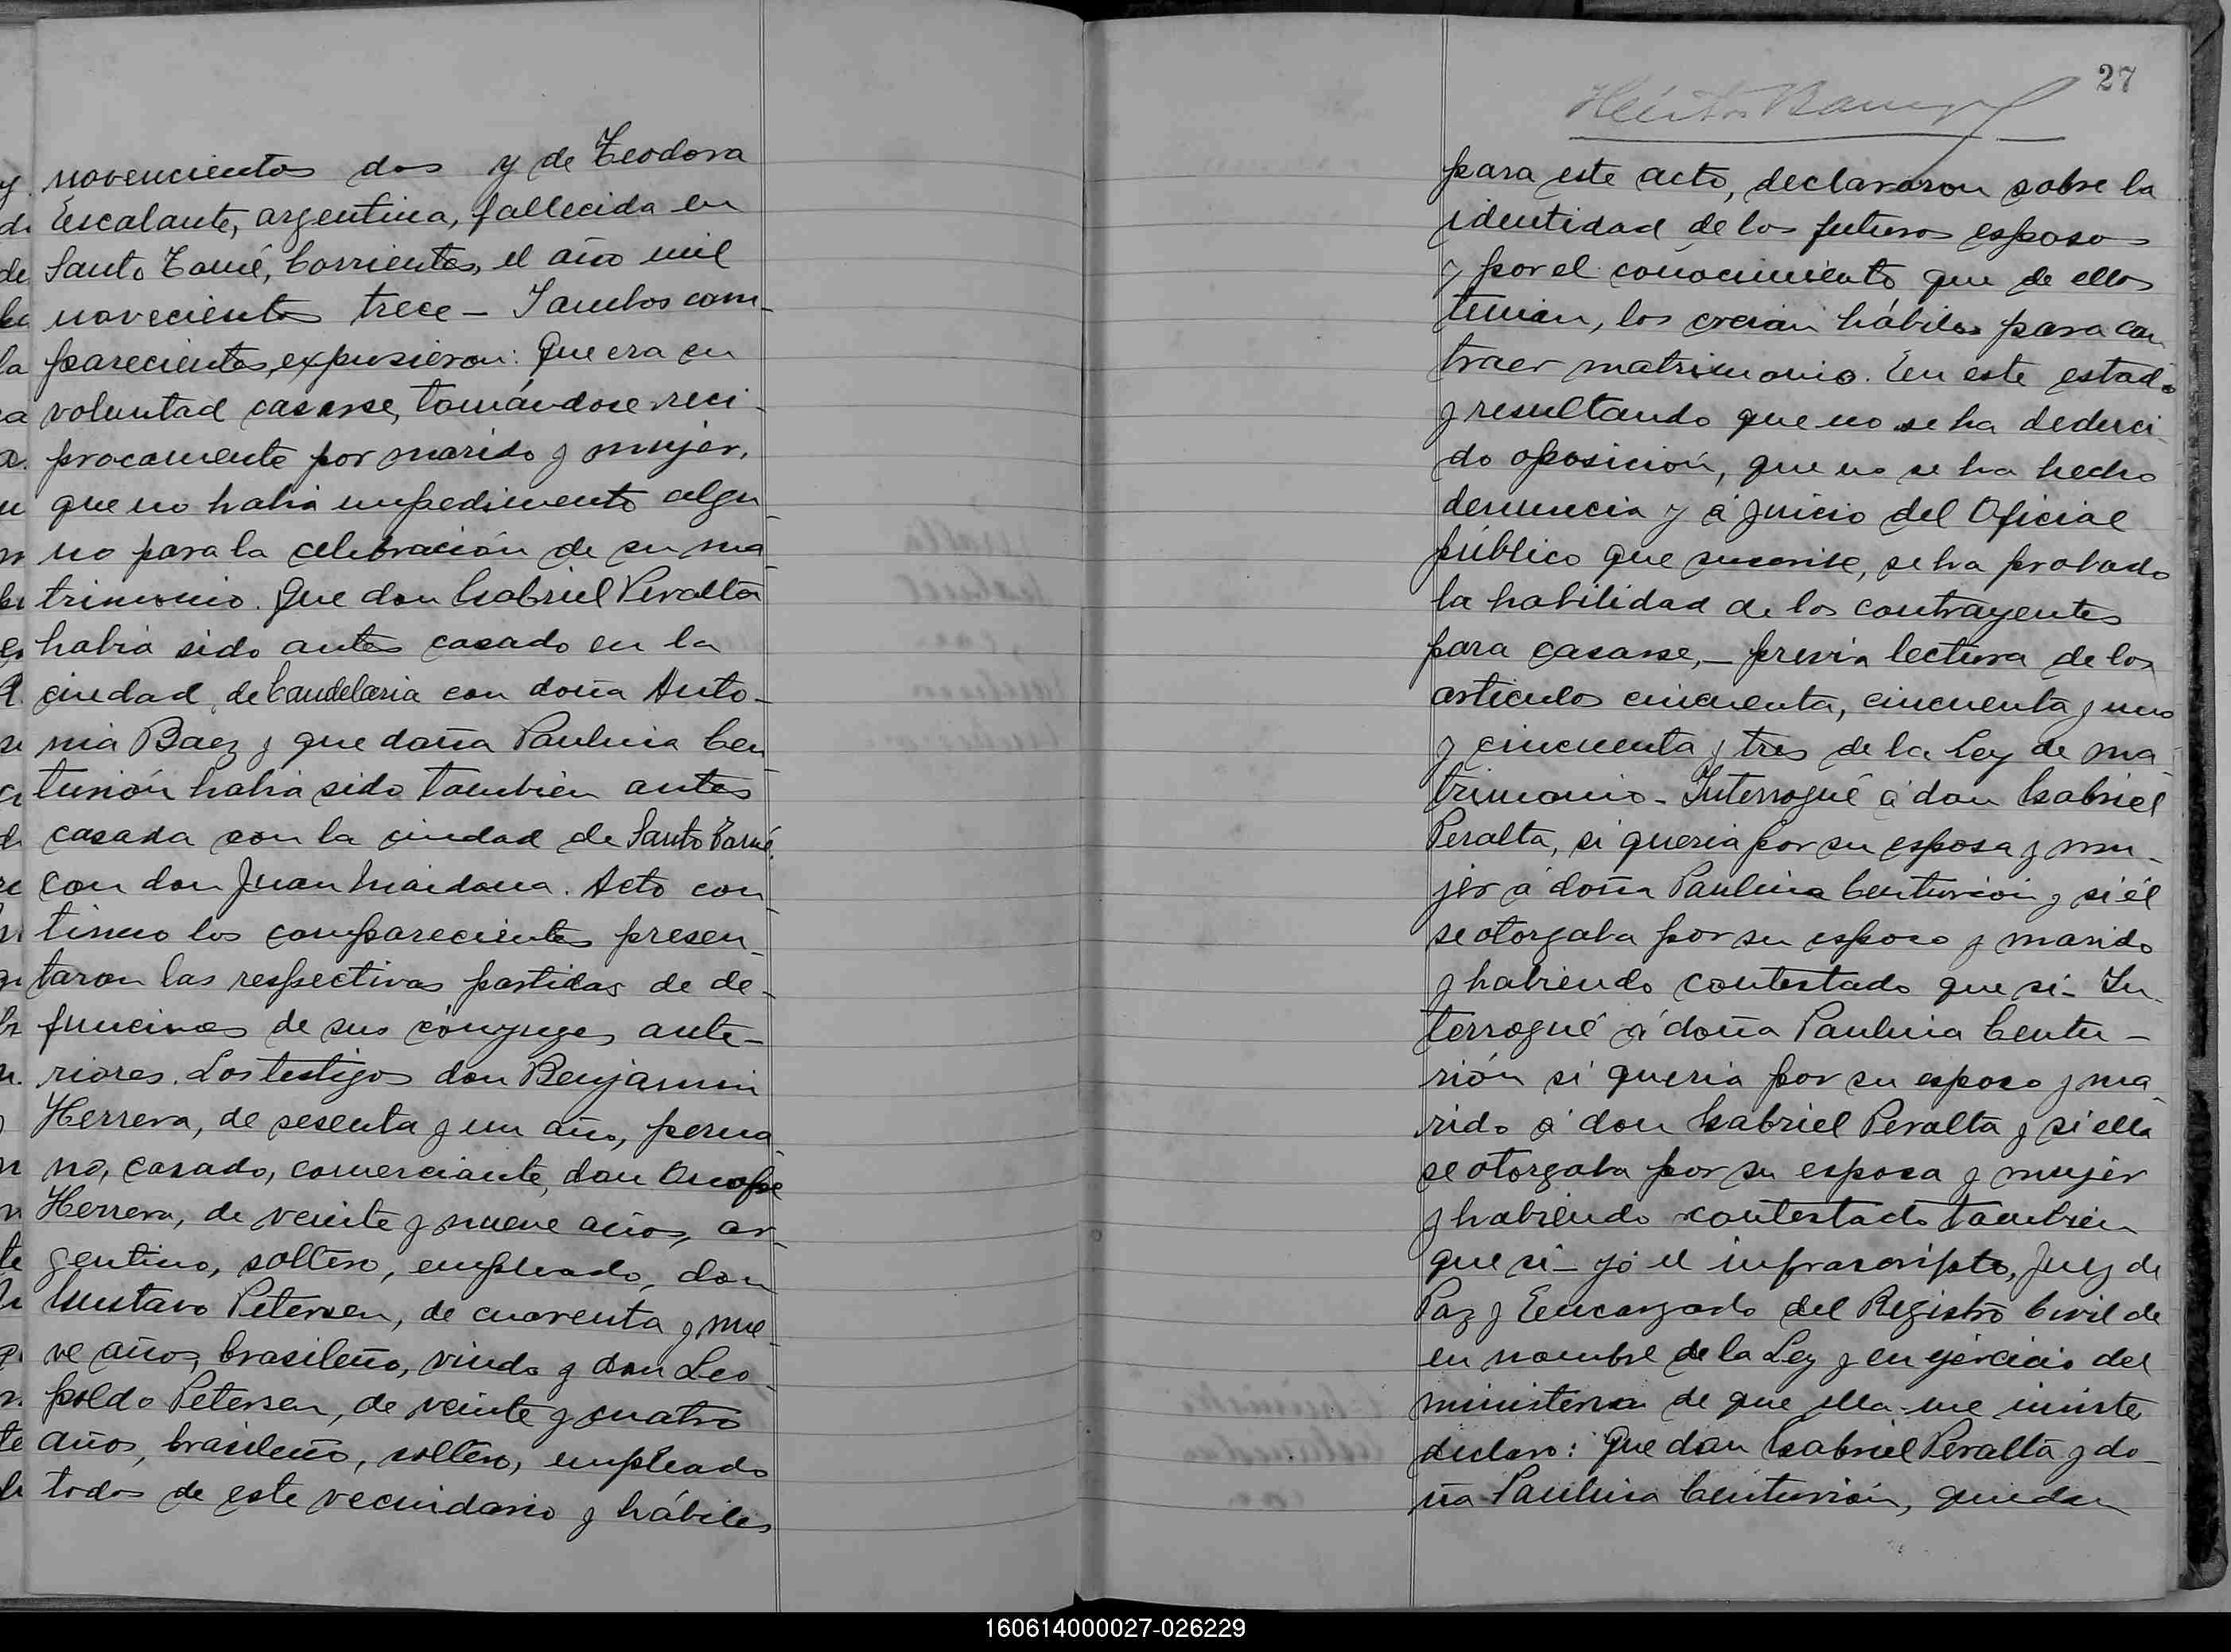 novencientos dos y de Teodora
Escalante, argentina, fallecida en
Santo Tomé, Corrientes, el año mil
novecientos trece - I ambos com-
parecientes, expusieron: Que era su
voluntad casarse, tomándose reci-
procamente por marido y mujer,
que no habia impedimento algu-
no para la celebración de su ma-
trimonio. Que don Gabriel Peralta
habia sido antes casado en la
ciudad de Candelaria con doña Anto-
nia Baez y que doña Paulina Cen-
turión habia sido tambien antes
casada con la ciudad de Santo Tomé.
con don Juan Maidana. Acto con-
tinuo los comparecientes presen-
taron las respectivas partidas de de-
funciones de sus cónyuges ante-
riores. Los testigos don Benjamin
Herrera, de sesenta y un años, perua-
no, casado, comerciante, don Onofre
Herrera, de veinte y nueve años, ar-
gentino, soltero, empleado, don
Gustavo Petersen, de cuarenta y nue-
ve años, brasileño, viudo y don Leo-
poldo Petersen, de veinte y cuatro
años, brasileño, soltero, empleado
todos de este vecindario y hábiles
27
para este acto, declararon sobre la
identidad de los futuros esposos
y por el conocimiento que de ellos
tenian, los creian hábiles para con
traer matrimonio. En este estado
y resultando que no se ha deduci-
do oposición, que no se ha hecho
denuncia y á juicio del Oficial
público que suscribe, se ha probado
la habilidad de los contrayentes
para casarse, - previa lectura de los
articulos cincuenta, cincuenta y uno
y cincuenta y tres de la Ley de ma-
trimonio - Interrogué á don Gabriel
Peralta, si queria por su esposa y mu-
jer á doña Paulina Centurión y si él
se otorgaba por su esposo y marido
y habiendo contestado que si - In-
terrogué á doña Paulina Centu-
rión si queria por su esposo y ma-
rido á don Gabriel Peralta y si ella
se otorgaba por su esposa y mujer
y habiendo contestado tambien
que si - yo el infrascripto, Juez de
Paz y Eencargado del Registro Civil de
en nombre de la Ley y en ejercicio del
ministerio de que ella me inviste,
declaro: Que don Gabriel Peralta y do-
ña Paulina Centurión, quedan
160614000027-026229